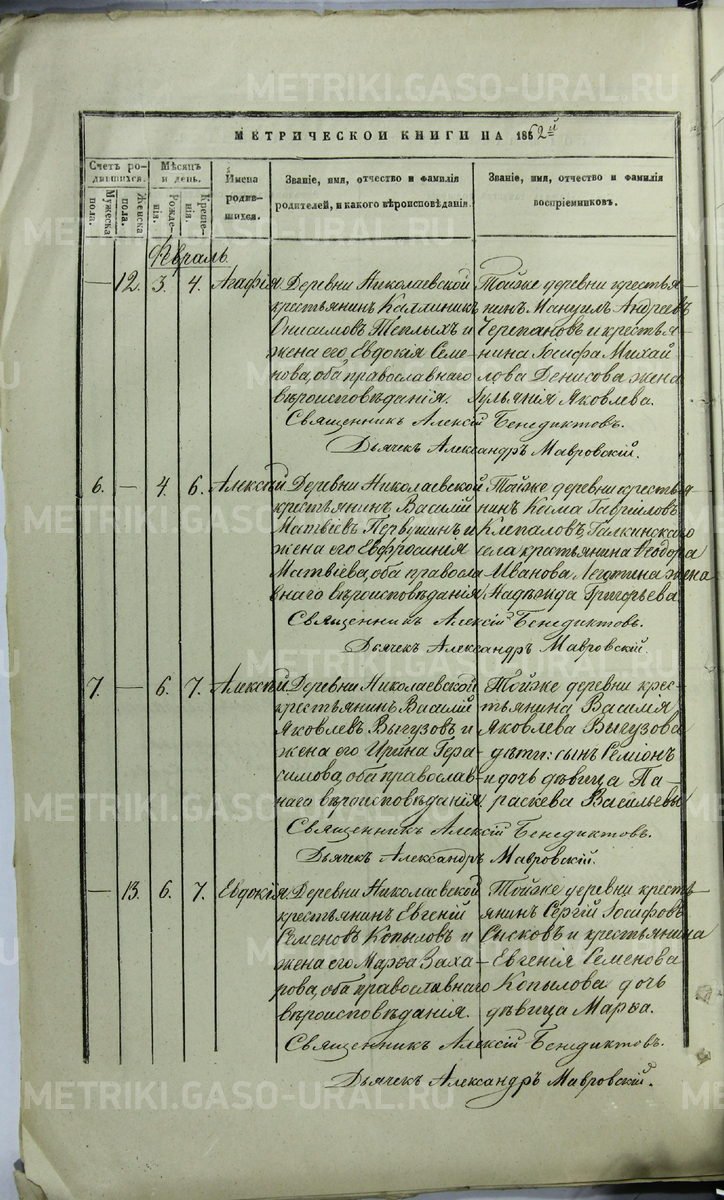 МЕТРИЧЕСКОЙ КНИГИ НА 1862й
Счетъ родившихся.
Мѣсяцъ и день.
Имена родившихся.
Званіе, имя, отчество и фамилія родителей, и какого вѣроисповѣданія.
Званіе, имя, отчество и фамилія воспріемниковъ.
Мужеска пола.
Женска пола.
Рожденія.
Крещенія.
Февраль.
— 12. 3. 4. Агафія Деревни Николаевской Тойже деревни крестья-
крестьянинъ Каллиникъ нинъ Мануилъ Андреевъ
Онисимовъ Теплыхъ и Черепановъ и крестья-
жена его Евдокія Семе- нина Іосифа Михай
нова, оба православнаго лова Денисова жена
вѣроисповѣданія. Іульянія Яковлева.
Священникъ Алексій Бенедиктовъ.
Дьячекъ Александръ Мавровскій.
6. — 4. 6. Алексѣй Деревни Николаевской Тойже деревни крестья
крестьянинъ Василій нинъ Косма Гавріиловъ
Матвѣевъ Первушинъ и Клепаловъ, Галкинскаго
жена его Евфросинія села крестьянина Ѳеодора
Матвѣева, оба правосла Иванова Леготина жена
внаго вѣроисповѣданія Надѣжда Григорьева.
Священникъ Алексій Бенедиктовъ.
Дьячекъ Александръ Мавровскій.
7. — 6. 7. Алексѣй Деревни Николаевской Тойже деревни крес-
крестьянинъ Василій тьянина Василія
Яковлевъ Выгузовъ и Яковлева Выгузова
жена его Ирина Гера- дѣти: сынъ Семіонъ
симова, оба православ- и дочь дѣвица Па-
наго вѣроисповѣданія раскева Васильевы
Священникъ Алексій Бенедиктовъ.
Дьячекъ Александръ Мавровскій.
— 13. 6. 7. Евдокія Деревни Николаевской Тойже деревни кресть-
крестьянинъ Евгеній янинъ Сергій Іосифовъ
Семеновъ Копыловъ и Сысковъ и крестьянина
жена его Марѳа Заха- Евгенія Семенова
рова, оба православнаго Копылова дочь
вѣроисповѣданія. дѣвица Марѳа.
Священникъ Алексій Бенедиктовъ.
Дьячекъ Александръ Мавровскій.
METRIKI.GASO-URAL.RU